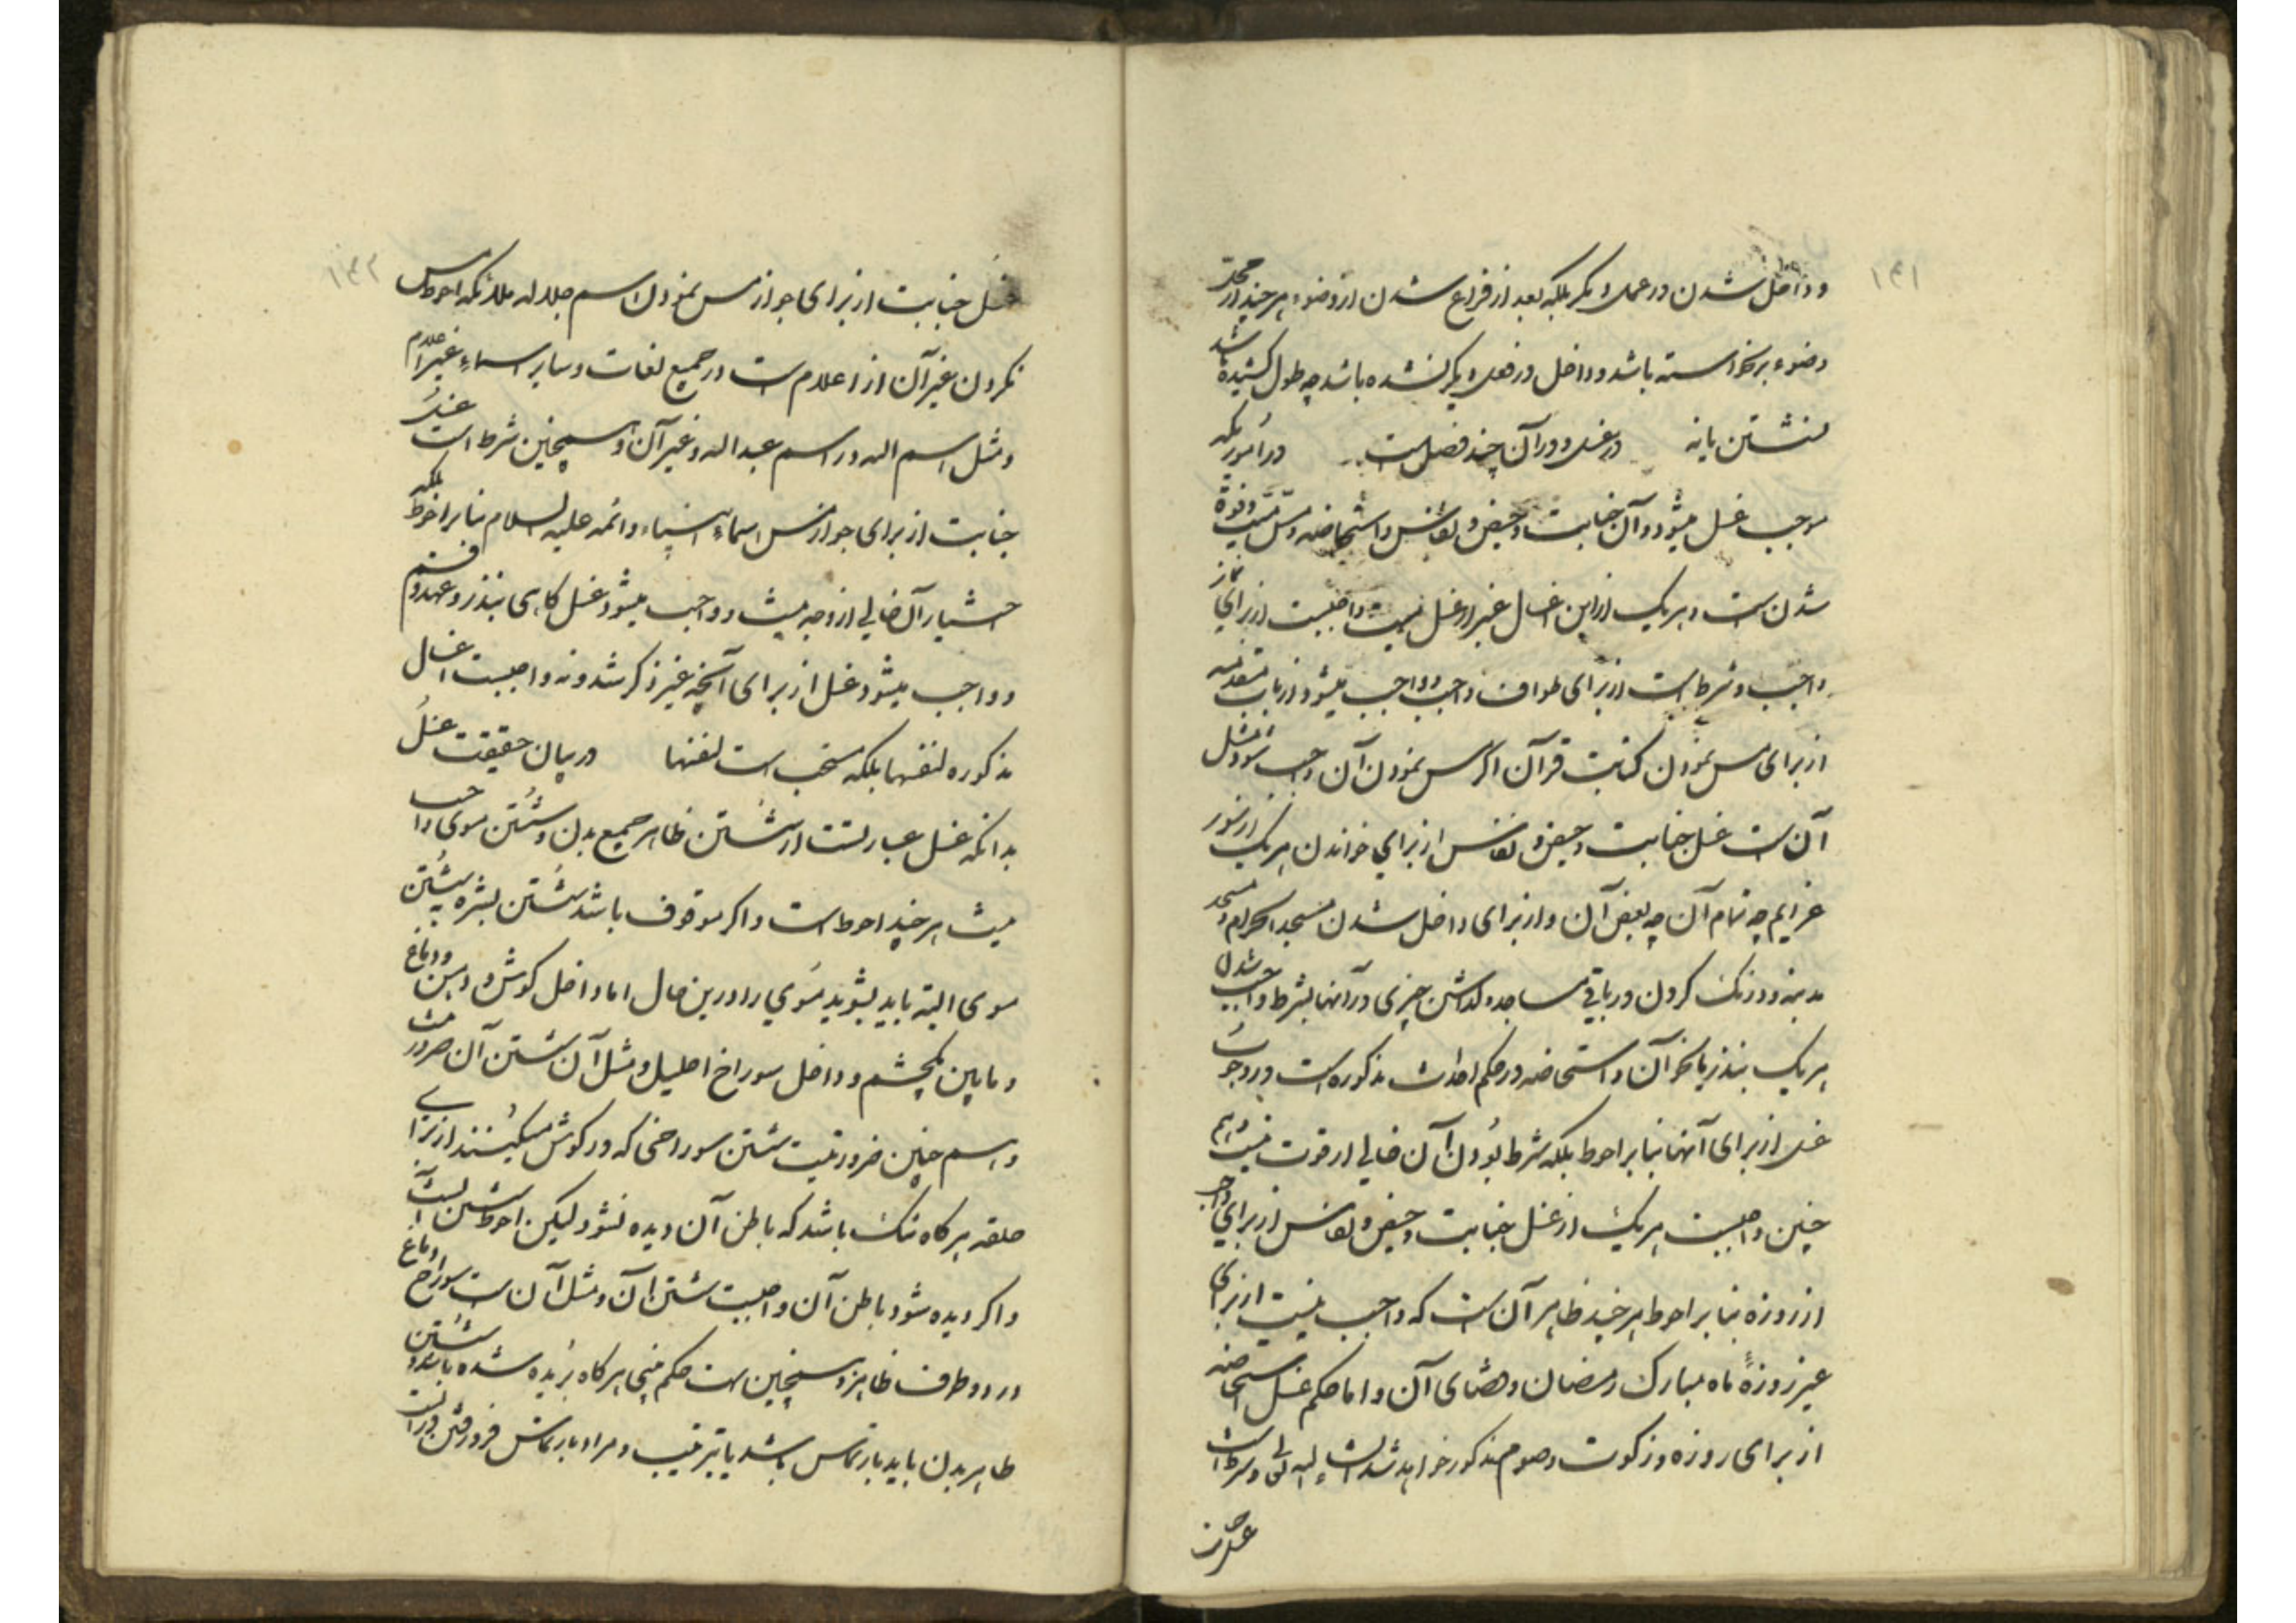 ۱۴۱
و داخل شدن در عمل دیگر بلکه بعد از فراغ شدن از وضوء هر چند از محل
وضوء برنخواسته باشد و داخل در فعل دیگر نشده باشد چه طول کشیده شد
نشستن یا نه در غسل و در آن چند فصل است در امور یکه
موجب غسل میشود و آن جنابت و حیض و نفاس و استحاضه و مس میت و فوت
شدن است و هر یک از این اغسال غیر از غسل میت واجبست از برای نماز
واجب و شرط است از برای طواف واجب و واجب میشود از باب مقدمه
از برای مس نمودن کتابت قرآن اگر مس نمودن آن واجب شود و مثل
آن است غسل جنابت و حیض و نفاس از برای خواندن هر یک از سور
عزایم چه تمام آن چه بعض آن و از برای داخل شدن مسجد الحرام و مسجد
مدینه و درنک کردن در باقی مساجد و گذاشتن چیزی در آنها بشرط واجب شدن
هر یک بنذر یا نحو آن و استحاضه در حکم احداث مذکوره است در وجوب
غسل از برای آنها بنابر احوط بلکه شرط بودن آن خالی از قوت نیست و هم
چنین واجبست هر یک از غسل جنابت و حیض و نفاس از برای واجب
از روزه بنابر احوط هر چند ظاهر آن است که واجب نیست از برای
غیر روزۀ ماه مبارک رمضان و قضای آن و اما حکم غسل استحاضه
از برای روزه در کوت و صوم مذکور خواهد شد انشاء الله تعالی و شرط است
غسل
۱۴۲
غسل جنابت از برای جواز مس نمودن اسم جلاله بلکه احوط مس
نکردن غیر آن از اعلام است در جمیع لغات و سایر اسماء غیر اعلام
و مثل اسم الله در اسم عبد الله و غیر آن و همچنین شرط است غسل
جنابت از برای جواز مس اسماء انبیاء و ائمه علیه السلام بنابر احوط بلکه
اشتراط آن خالی از وجه نیست و واجب میشود غسل گاهی بنذر و عهد و قسم
و واجب میشود غسل از برای آنچه غیر ذکر شد و نه واجبست اغسال
مذکوره لنفسها بلکه مستحب است لنفسها در بیان حقیقت غسل
بدانکه غسل عبارتست از شستن ظاهر جمیع بدن و شستن موی واجب
نیست هر چند احوط است و اگر موقوف باشد شستن بشره بشستن
موی البته باید بشوید موی را در این حال اما داخل گوش و دهن و دماغ
و مابین چشم و داخل سوراخ احلیل و مثل آن شستن آن ضرور نیست
و هم چنین ضرور نیست شستن سوراخی که در گوش میکنند از برای
حلقه هر گاه تنک باشد که باطن آن دیده نشود لیکن احوط شستن است
و اگر دیده شود باطن آن واجبست شستن آن و مثل آن است سوراخ دماغ
در دو طرف ظاهر و همچنین است حکم بینی هر گاه بریده شده باشد و شستن
ظاهر بدن باید بارتماس باشد یا بترتیب و مراد بارتماس فرو رفتن در آبست